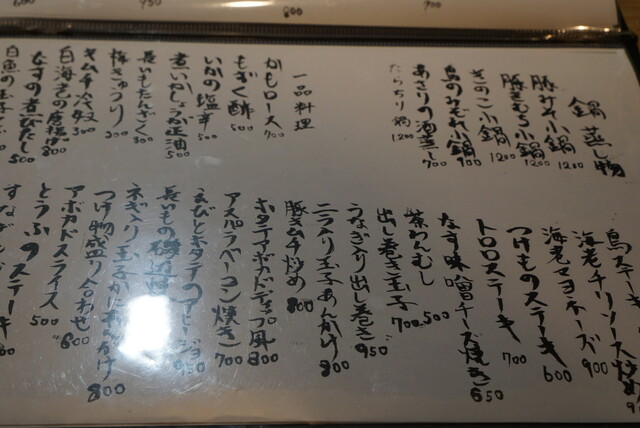 鍋 蒸し物
豚みそ小鍋 1200
豚きむち小鍋 1200
きのこ小鍋 1200
鳥のみぞれ小鍋 900
あさりの酒蒸し 700
たらちり鍋 1200
一品料理
かもロース 700
もずく酢 500
いかの塩辛 500
煮いかしょうが正油 500
長いもたんざく 300
梅きゅうり 300
キムチ冷奴 300
白海老の唐揚げ 800
なすの煮びたし 500
白魚の玉子
鳥ステーキ
海老チリソース炒め
海老マヨネーズ 900
つけものステーキ 600
トロロステーキ 700
なす味噌チーズ焼き 650
茶わんむし 500
出し巻き玉子 700
うなぎ入り出し巻き 950
ニラ入り玉子あんかけ 800
豚キムチ炒め 800
ホタテアボカドディップ風 800
アスパラベーコン焼き 700
えびとホタテのアヒージョ 950
長いもの磯辺
ネギ入り玉子かにあんかけ 800
つけ物盛り合わせ 800
アボカドスライス 600
とうふのステーキ 500